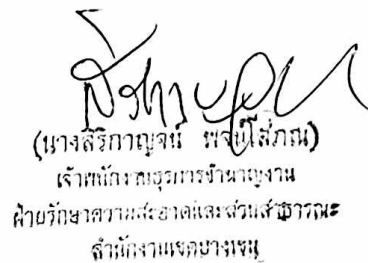 (นางสิริกาญจน์ พจน์โสภณ)
เจ้าพนักงานธุรการชำนาญงาน
ฝ่ายรักษาความสะอาดและสวนสาธารณะ
สำนักงานเขตบางเขน